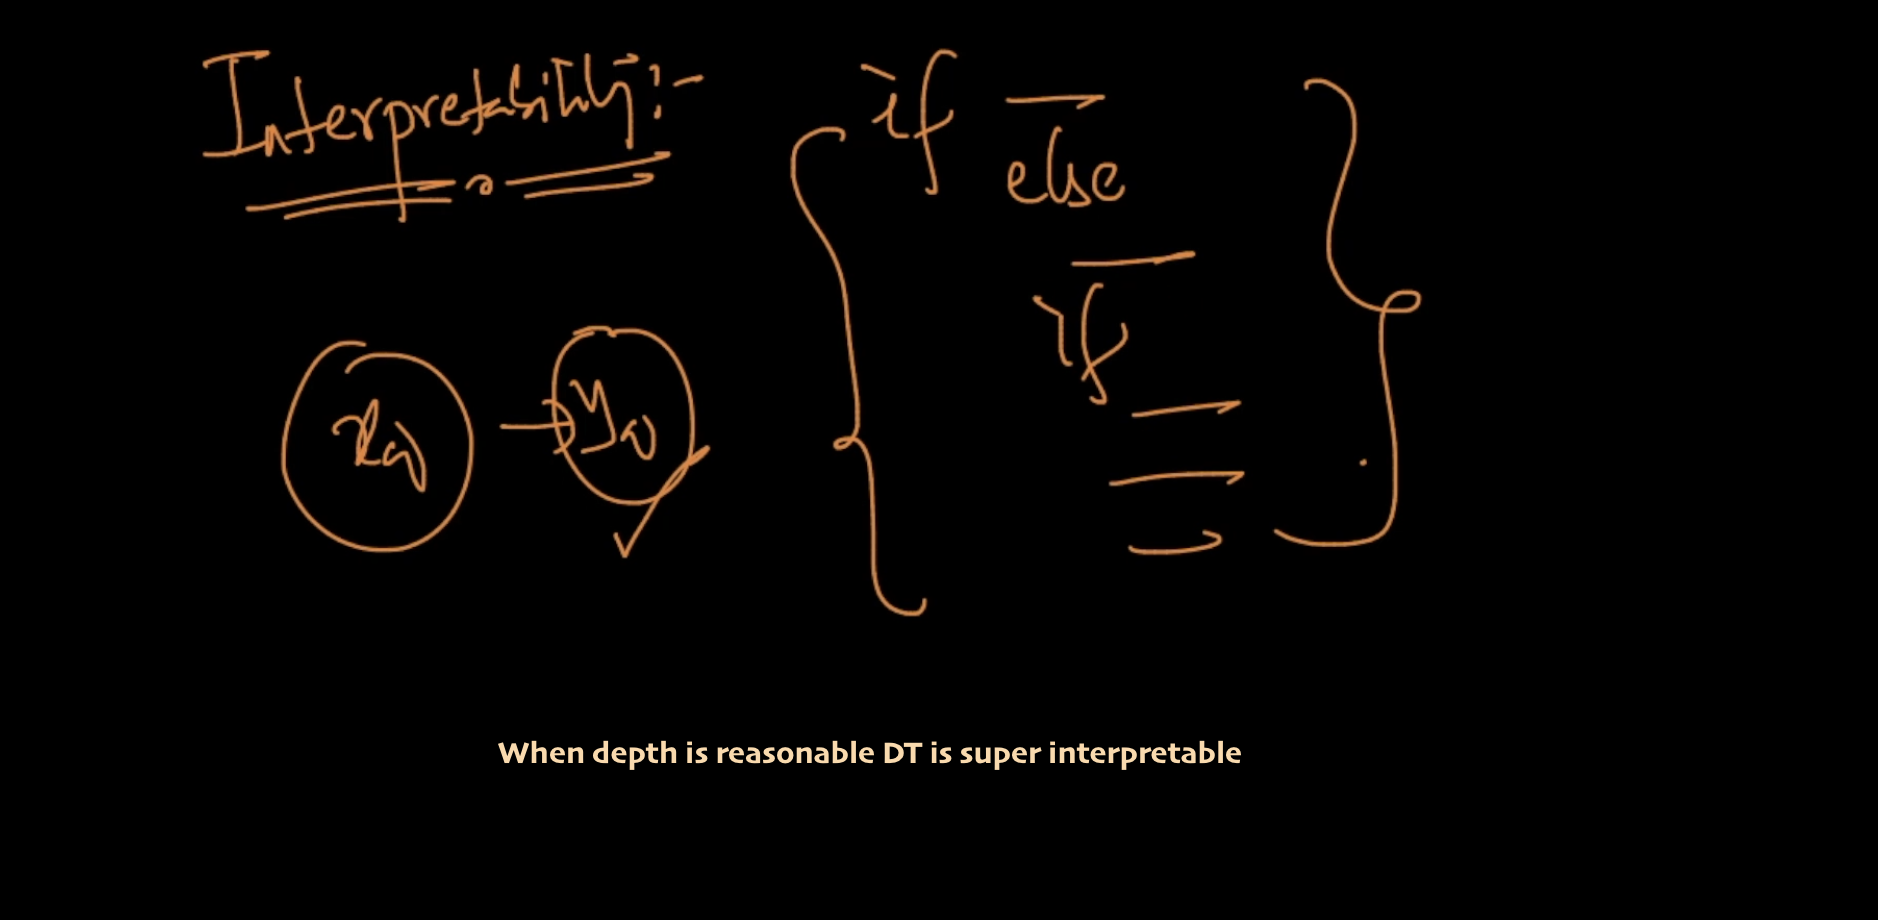 Interpretability:-
if
else
if
xq → yq
When depth is reasonable DT is super interpretable